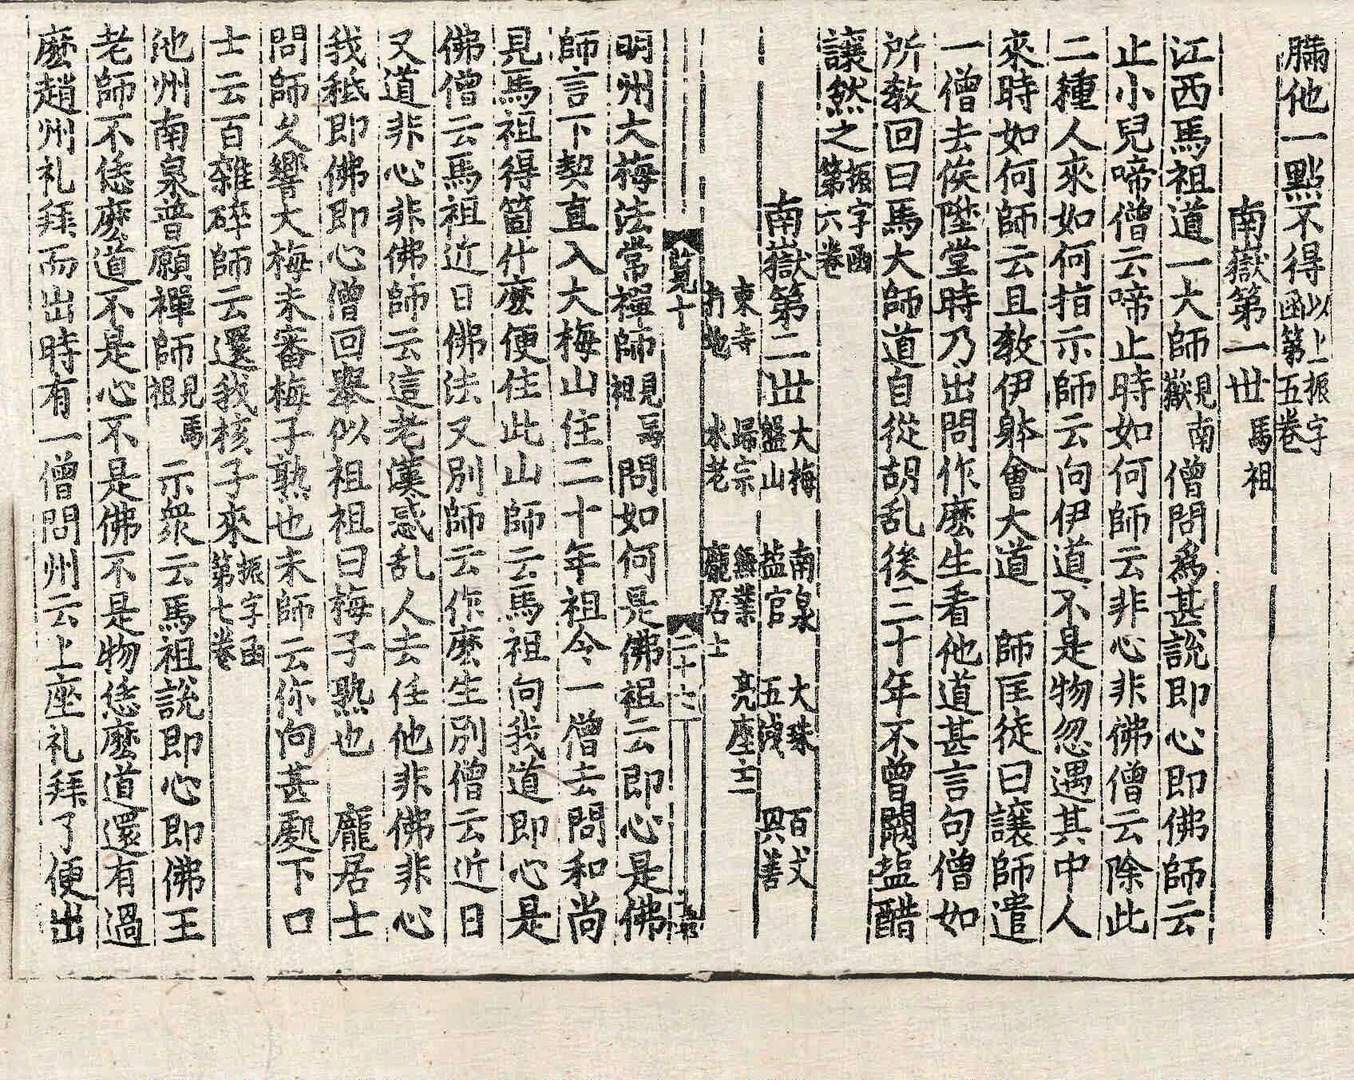 瞞他一點不得以上振字函第五卷
南嶽第一世馬祖
江西馬祖道一大師見南嶽僧問爲甚說即心即佛師云
止小兒啼僧云啼止時如何師云非心非佛僧云除此
二種人來如何指示師云向伊道不是物忽遇其中人
來時如何師云且教伊躰會大道 師匡徒曰讓師遣
一僧去俟陞堂時乃出問作麽生看他道甚言句僧如
所教回曰馬大師道自從胡乱後三十年不曾闕塩醋
讓然之振字函第六卷
南嶽第二世大梅 南泉 大珠 百丈 盤山 塩官 五洩 興善
東寺 歸宗 無業 亮座主 水老 龐居士
覧十 二十七
明州大梅法常禪師見馬祖問如何是佛祖云即心是佛
師言下契直入大梅山住二十年祖令一僧去問和尚
見馬祖得箇什麽便住此山師云馬祖向我道即心是
佛僧云馬祖近日佛法又別師云作麽生別僧云近日
又道非心非佛師云這老漢惑乱人去任他非佛非心
我秖即佛即心僧回舉似祖祖曰梅子熟也 龐居士
問師久響大梅未審梅子熟也未師云你向甚處下口
士云百雜碎師云還我核子來振字函第七卷
池州南泉普願禪師見馬祖 示衆云馬祖說即心即佛王
老師不恁麽道不是心不是佛不是物恁麽道還有過
麽趙州礼拜而出時有一僧問州云上座礼拜了便出